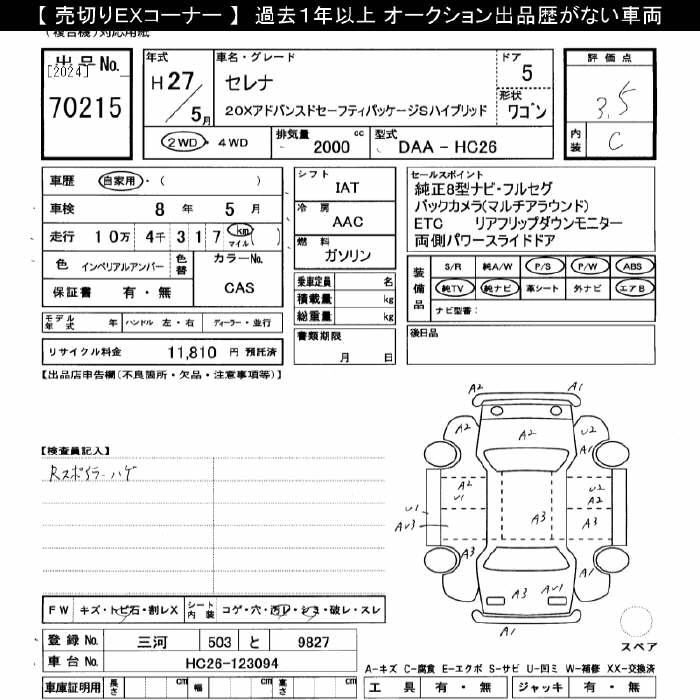 【 売切りEXコーナー 】 過去1年以上 オークション出品歴がない車両
(複合機)対応用紙
出品No.
[2024]
70215
年式
H27/5月
車名・グレード
セレナ
20XアドバンスドセーフティパッケージSハイブリッド
ドア
5
形状
ワゴン
2WD・4WD
排気量 cc
2000
型式
DAA - HC26
評価点
3.5
内装
C
車歴 自家用・( )
車検 8年 5月
走行 10万 4千 317 km マイル ( )
色 インペリアルアンバー 色替 カラーNo.
保証書 有・無 CAS
モデル年式 年 ハンドル 左・右 ディーラー・並行
リサイクル料金 11,810 円 預託済
シフト
IAT
冷房
AAC
燃料
ガソリン
乗車定員 名
積載量 kg
総重量 kg
書類期限
月 日
セールスポイント
純正8型ナビ・フルセグ
バックカメラ(マルチアラウンド)
ETC リアフリップダウンモニター
両側パワースライドドア
装備品
S/R 純A/W P/S P/W ABS
純TV 純ナビ 革シート 外ナビ エアB
ナビ型番:
後日品
【出品店申告欄(不良箇所・欠品・注意事項等)】
【検査員記入】
Rスポイラーハゲ
A2 A1
A2 A2 U2
A1
A2 U1 U2 A2
U1 AU3 A3 A3
A3 A1
A3 AU1
A1
スペア
FW キズ・トビ石・割レX シート内装 コゲ・穴・汚レ・シミ・破レ・スレ
登録No. 三河 503 と 9827
車台No. HC26-123094
車庫証明用 長さ cm 幅 cm 高さ cm
A-キズ C-腐食 E-エクボ S-サビ U-凹ミ W-補修 XX-交換済
工具 有・無 ジャッキ 有・無